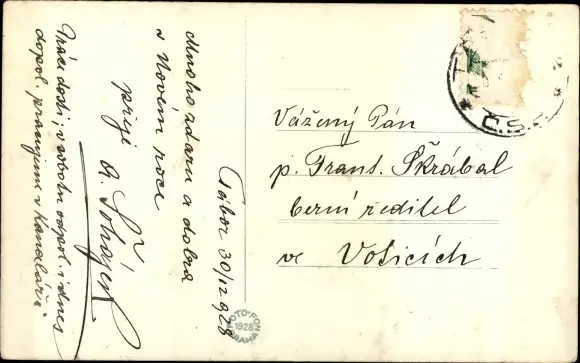 Mnoho zdaru a dobra
v Novém roce
přeje
Tábor 30/12 928
Práci dosti, v sobotu odpol. i dnes
dopol. pracujem v kanceláři.
Vážený Pán
p. Frant. Škrábal
berní ředitel
ve Voticích
Č.S.
FOTOFON
1928
PRAHA